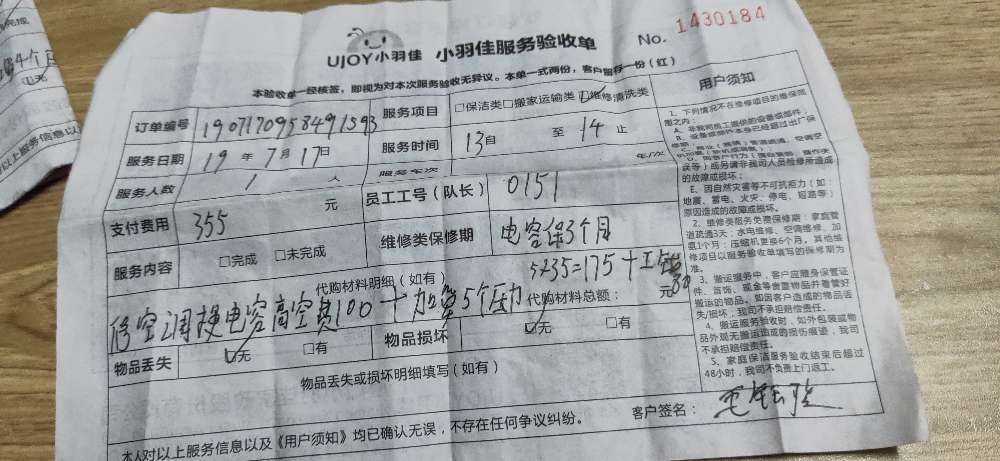 完成
4个月
无
以上服务信息以
UJOY小羽佳 小羽佳服务验收单 No. 1430184
本验收单一经核签，即视为对本次服务验收无异议。本单一式两份，客户留存一份（红）
订单编号 1907170958491593 服务项目 □保洁类□搬家运输类☑维修清洗类
服务日期 19年7月17日 服务时间 13自 至14止
服务人数 1 人 服务车次 车/次
支付费用 355 元 员工工号（队长） 0151
服务内容 □完成 □未完成 维修类保修期 电容保3个月
代购材料明细（如有） 5×35=175+工钱80
修空调换电容高空费100+加氟5个压力 代购材料总额： 元
物品丢失 ☑无 □有 物品损坏 ☑无 □有
物品丢失或损坏明细填写（如有）
本人对以上服务信息以及《用户须知》均已确认无误，不存在任何争议纠纷。 客户签名：
用户须知
1、下列情况不在维修项目的维保范
围之内：
A、非我司员工提供的设备或部件；
B、设备或部件本身已经超过出厂保
误等）或另请非我司人员检修所造成
的故障或损坏；
E、因自然灾害等不可抗拒力（如：
地震、蓄电、火灾、停电、短路等）
原因造成的故障或损坏。
2、维修类服务免费保修期：家庭管
道疏通3天；水电维修、空调维修、加
氨1个月；压缩机更换6个月，其他维
修项目以服务验收单填写的保修期为
准。
3、搬运服务中，客户应随身保管证
件、首饰、现金等贵重物品并看管好
搬运的物品。如因客户造成的物品丢
失/损坏，我司不承担赔偿责任。
4、搬运服务验收时，如外包装或物
品外观无搬运造成的损伤痕迹，我司
不承担赔偿责任。
5、家庭保洁服务验收结束后超过
48小时，我司不负责上门返工。